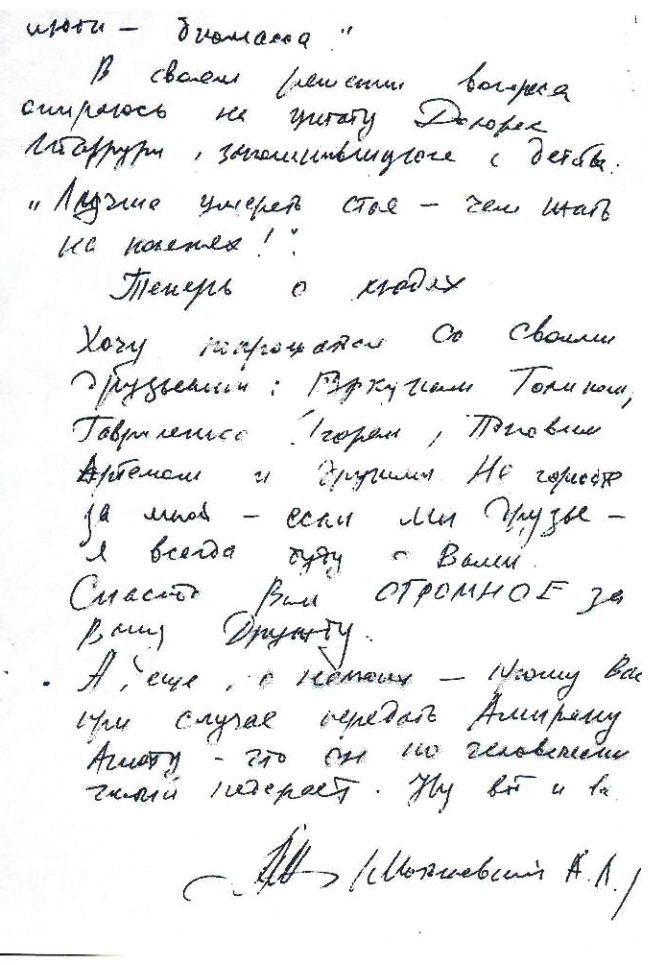 люди – биомасса"
В своем решении вопроса
опираюсь на цитату Долорес
Ибаррури, запомнившуюся с детства.
„Лучше умереть стоя – чем жить
на коленях!".
Теперь о людях
Хочу попрощаться со своими
друзьями: Толиком,
Гавриленко Игорем,
Артемом и другими Не горюйте
за мной – если мы друзья –
я всегда буду с Вами.
Спасибо Вам ОГРОМНОЕ за
Вашу Дружбу.
А, еще, – прошу Вас
при случае передать
– что он по человечески
. Ну вот и
(Можиевский А.Л.)